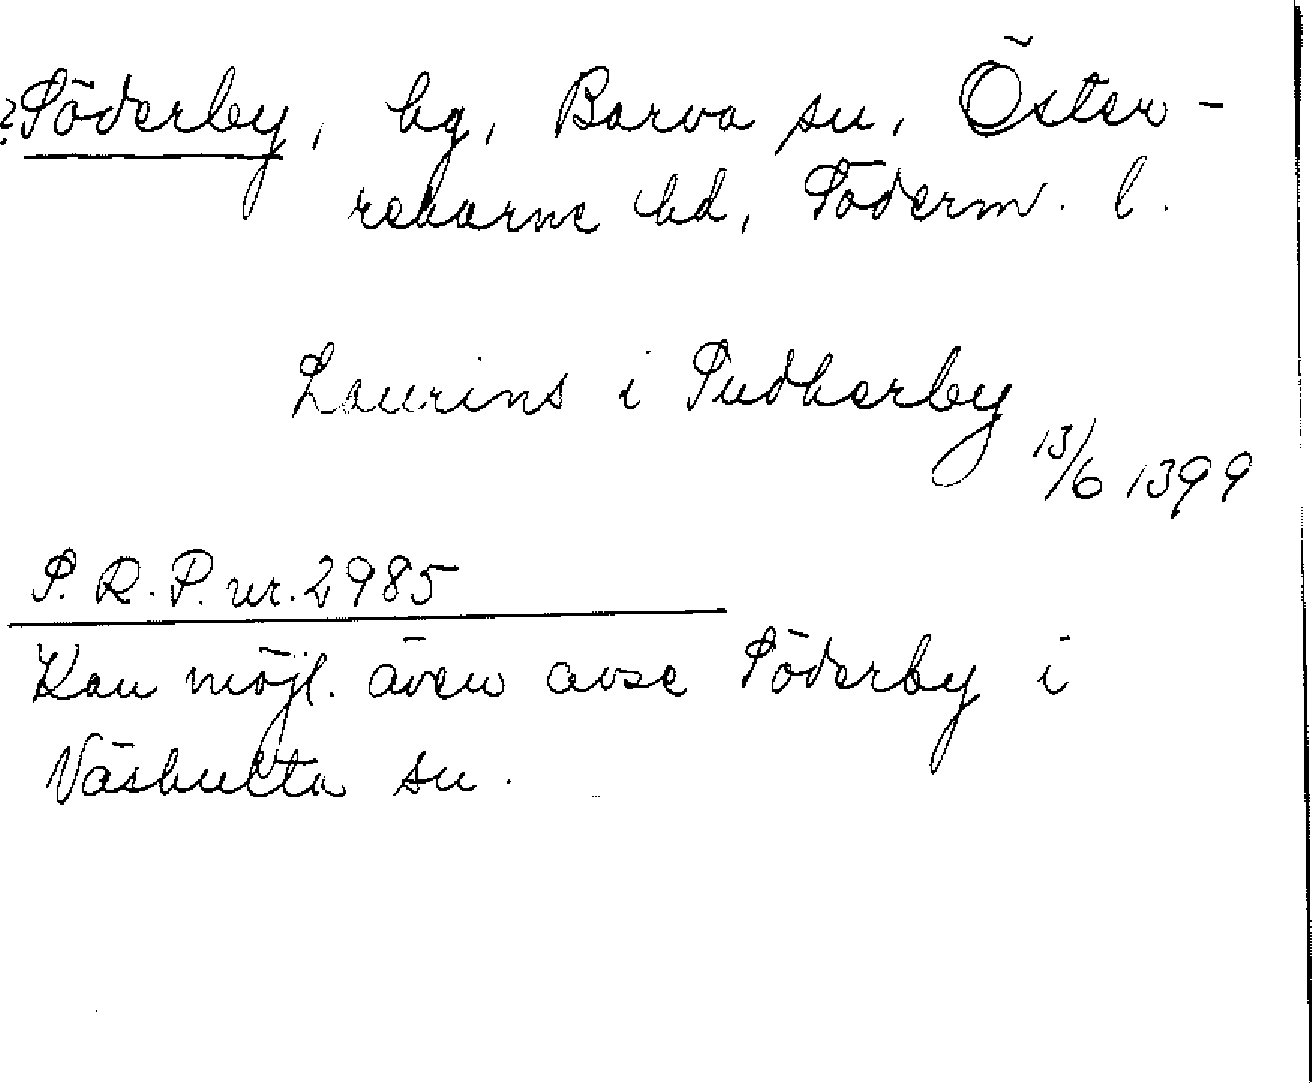 ?Söderby, hg, Barva sn, Öster-
rekarne hd, Söderm. l.
Laurins i Sudherby
13/6 1399
S. R. P. nr. 2985
Kan möjl. även avse Söderby i
Näshulta sn.